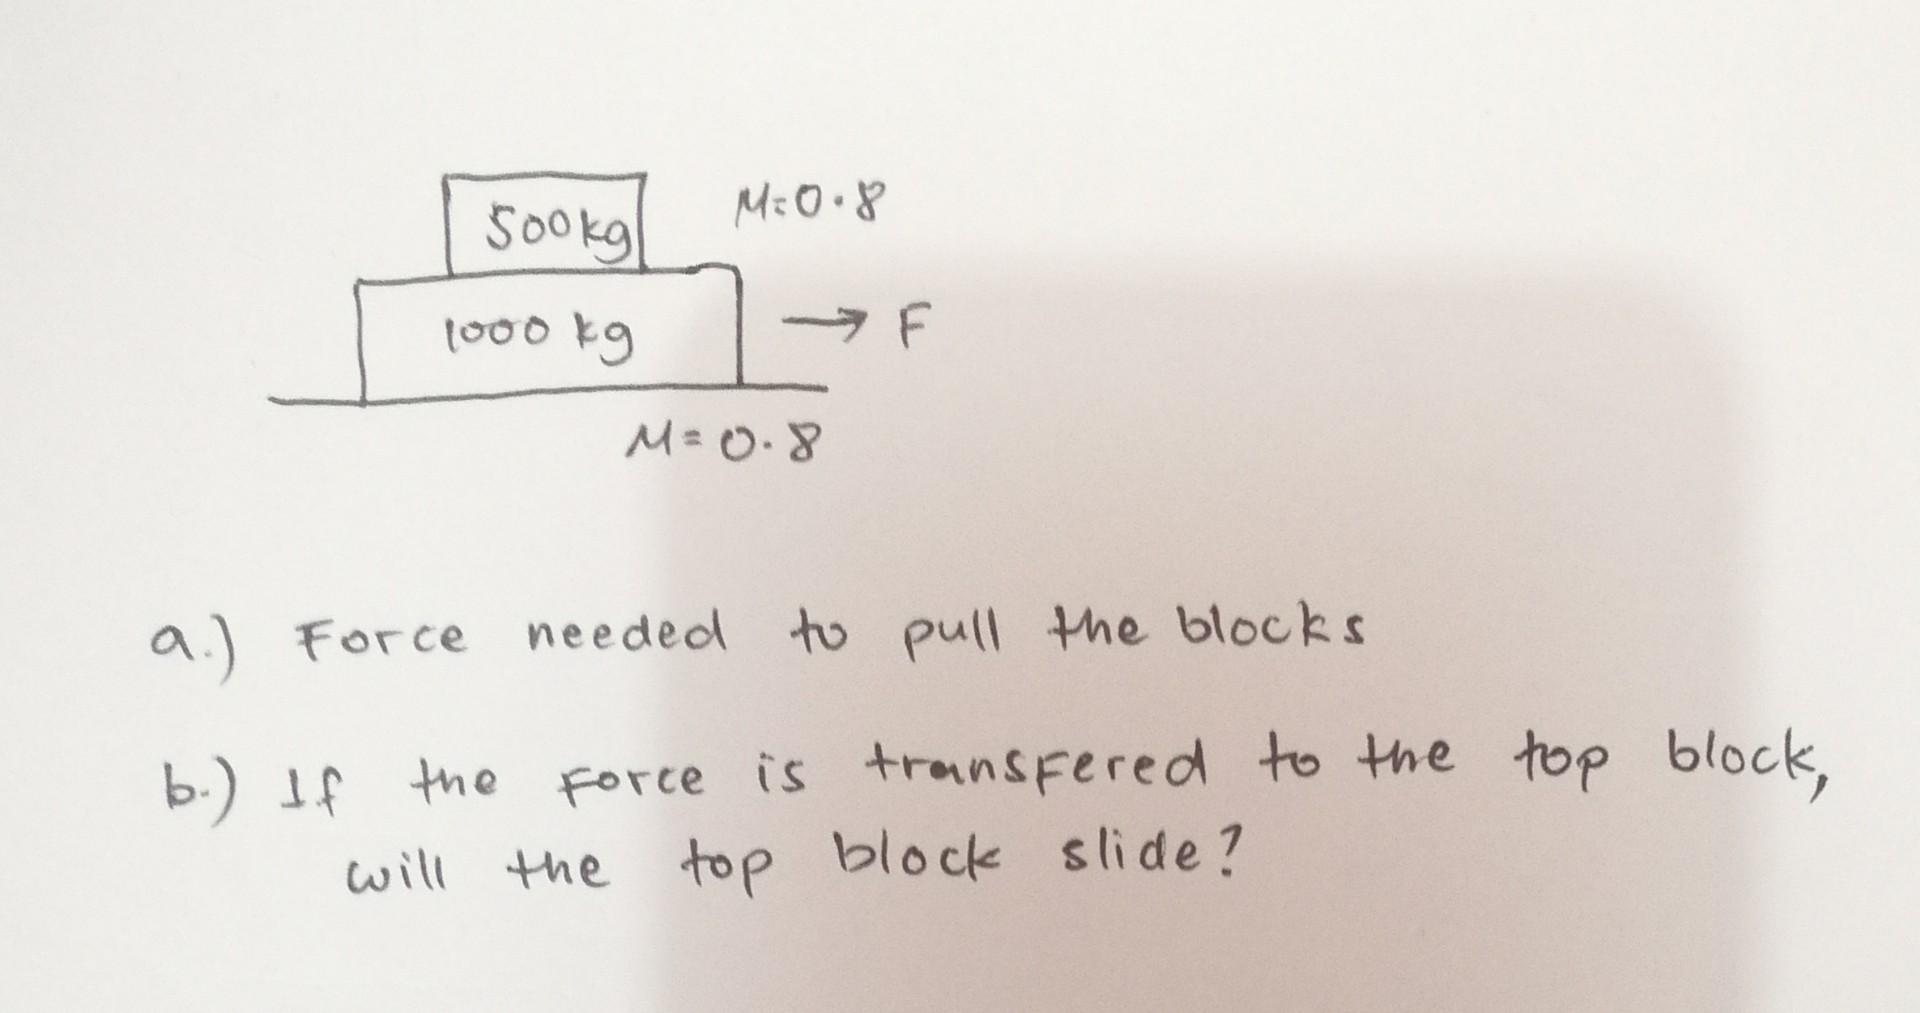 500kg M=0.8
1000 kg → F
M=0.8
a.) Force needed to pull the blocks
b.) If the force is transfered to the top block,
will the top block slide?